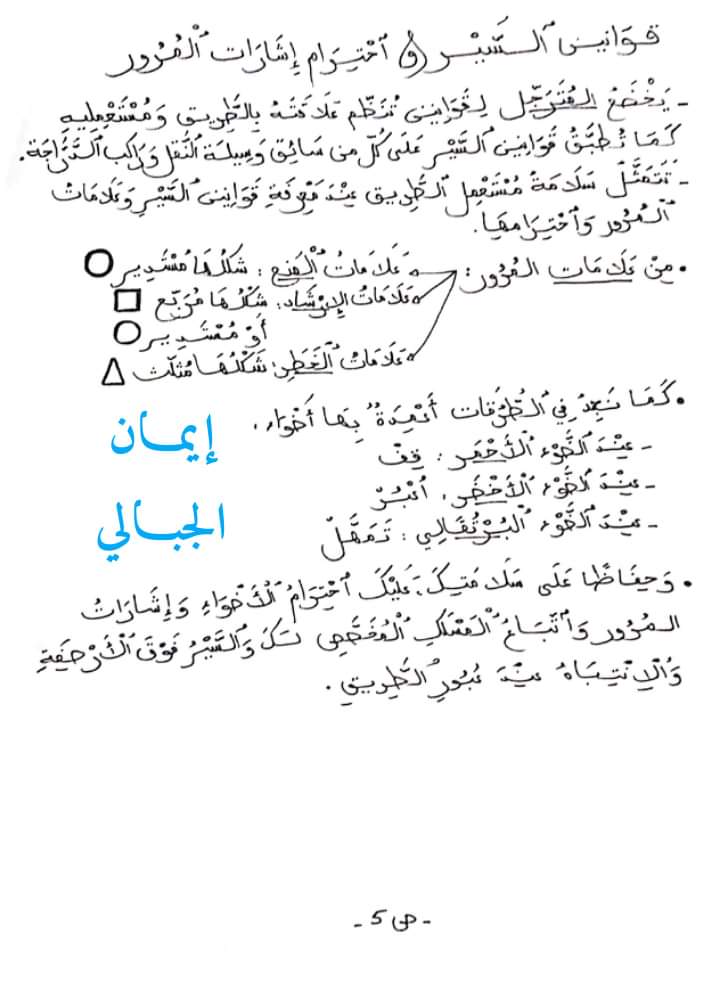 قَوَانِينُ ٱلسَّيْرِ وَ ٱحْتِرَامِ إِشَارَاتِ ٱلْمُرُورِ
- يَخْضَعُ المُتَرَجِّلُ لِقَوَانِينَ تُنَظِّمُ عَلَاقَتَهُ بِالطَّرِيقِ وَمُسْتَعْمِلِيهِ
كَمَا تُطَبَّقُ قَوَانِينُ السَّيْرِ عَلَى كُلِّ مَنْ سَائِقِ وَسِيلَةِ النَّقْلِ وَرَاكِبِ ٱلدَّرَّاجَةِ.
- تَتَمَثَّلُ سَلَامَةُ مُسْتَعْمِلِ ٱلطَّرِيقِ عِنْدَ مَعْرِفَةِ قَوَانِينِ السَّيْرِ وَعَلَامَاتِ
ٱلْمُرُورِ وَٱحْتِرَامِهَا.
• مِنْ عَلَامَاتِ المُرُورِ:
عَلَامَاتُ ٱلْمَنْعِ: شَكْلُهَا مُسْتَدِيرٌ
عَلَامَاتُ الإِرْشَادِ: شَكْلُهَا مُرَبَّعٌ
أَوْ مُسْتَدِيرٌ
عَلَامَاتُ ٱلْخَطَرِ: شَكْلُهَا مُثَلَّثٌ
• كَمَا نَجِدُ فِي ٱلطُّرُقَاتِ أَعْمِدَةً بِهَا أَضْوَاءٌ.
- عِنْدَ ٱلضَّوْءِ ٱلْأَحْمَرِ: قِفْ
- عِنْدَ ٱلضَّوْءِ ٱلْأَخْضَرِ: ٱعْبُرْ
- عِنْدَ ٱلضَّوْءِ ٱلْبُرْتُقَالِي: تَمَهَّلْ
• وَحِفَاظًا عَلَى سَلَامَتِكَ، عَلَيْكَ ٱحْتِرَامُ ٱلْأَضْوَاءِ وَإِشَارَاتُ
المُرُورِ وَٱتِّبَاعُ ٱلْمَسْلَكِ ٱلْمُخَصَّصِ لَكَ وَٱلسَّيْرُ فَوْقَ ٱلْأَرْصِفَةِ
وَٱلِانْتِبَاهُ عِنْدَ عُبُورِ ٱلطَّرِيقِ.
إيمان
الجبالي
- ص 5 -